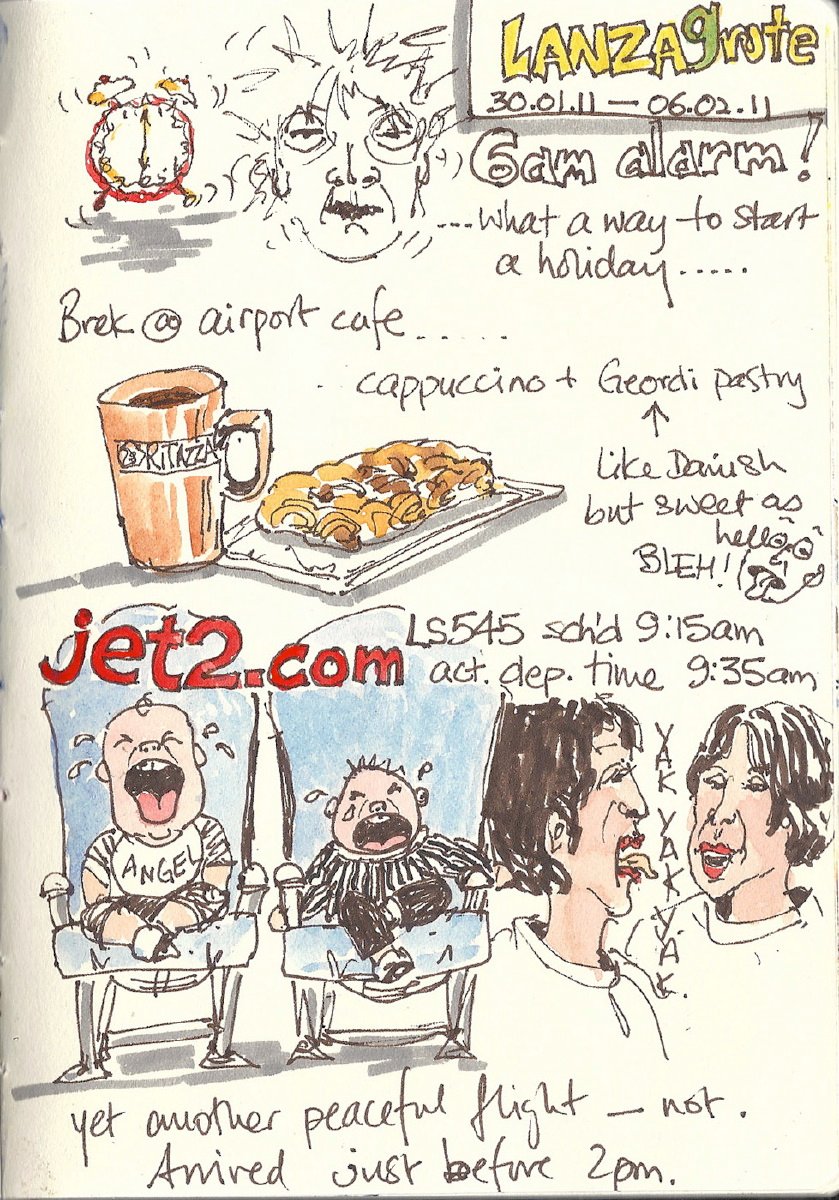 LANZAgrote
30.01.11 – 06.02.11
6am alarm!
...what a way to start
a holiday.....
Brek @ airport cafe......
cappuccino + Geordi pastry
RITAZZA
like Danish
but sweet as
hello
BLEH!
jet2.com
LS545 sch'd 9:15am
act. dep. time 9:35am
ANGEL
YAK YAK YAK.
yet another peaceful flight – not.
Arrived just before 2pm.